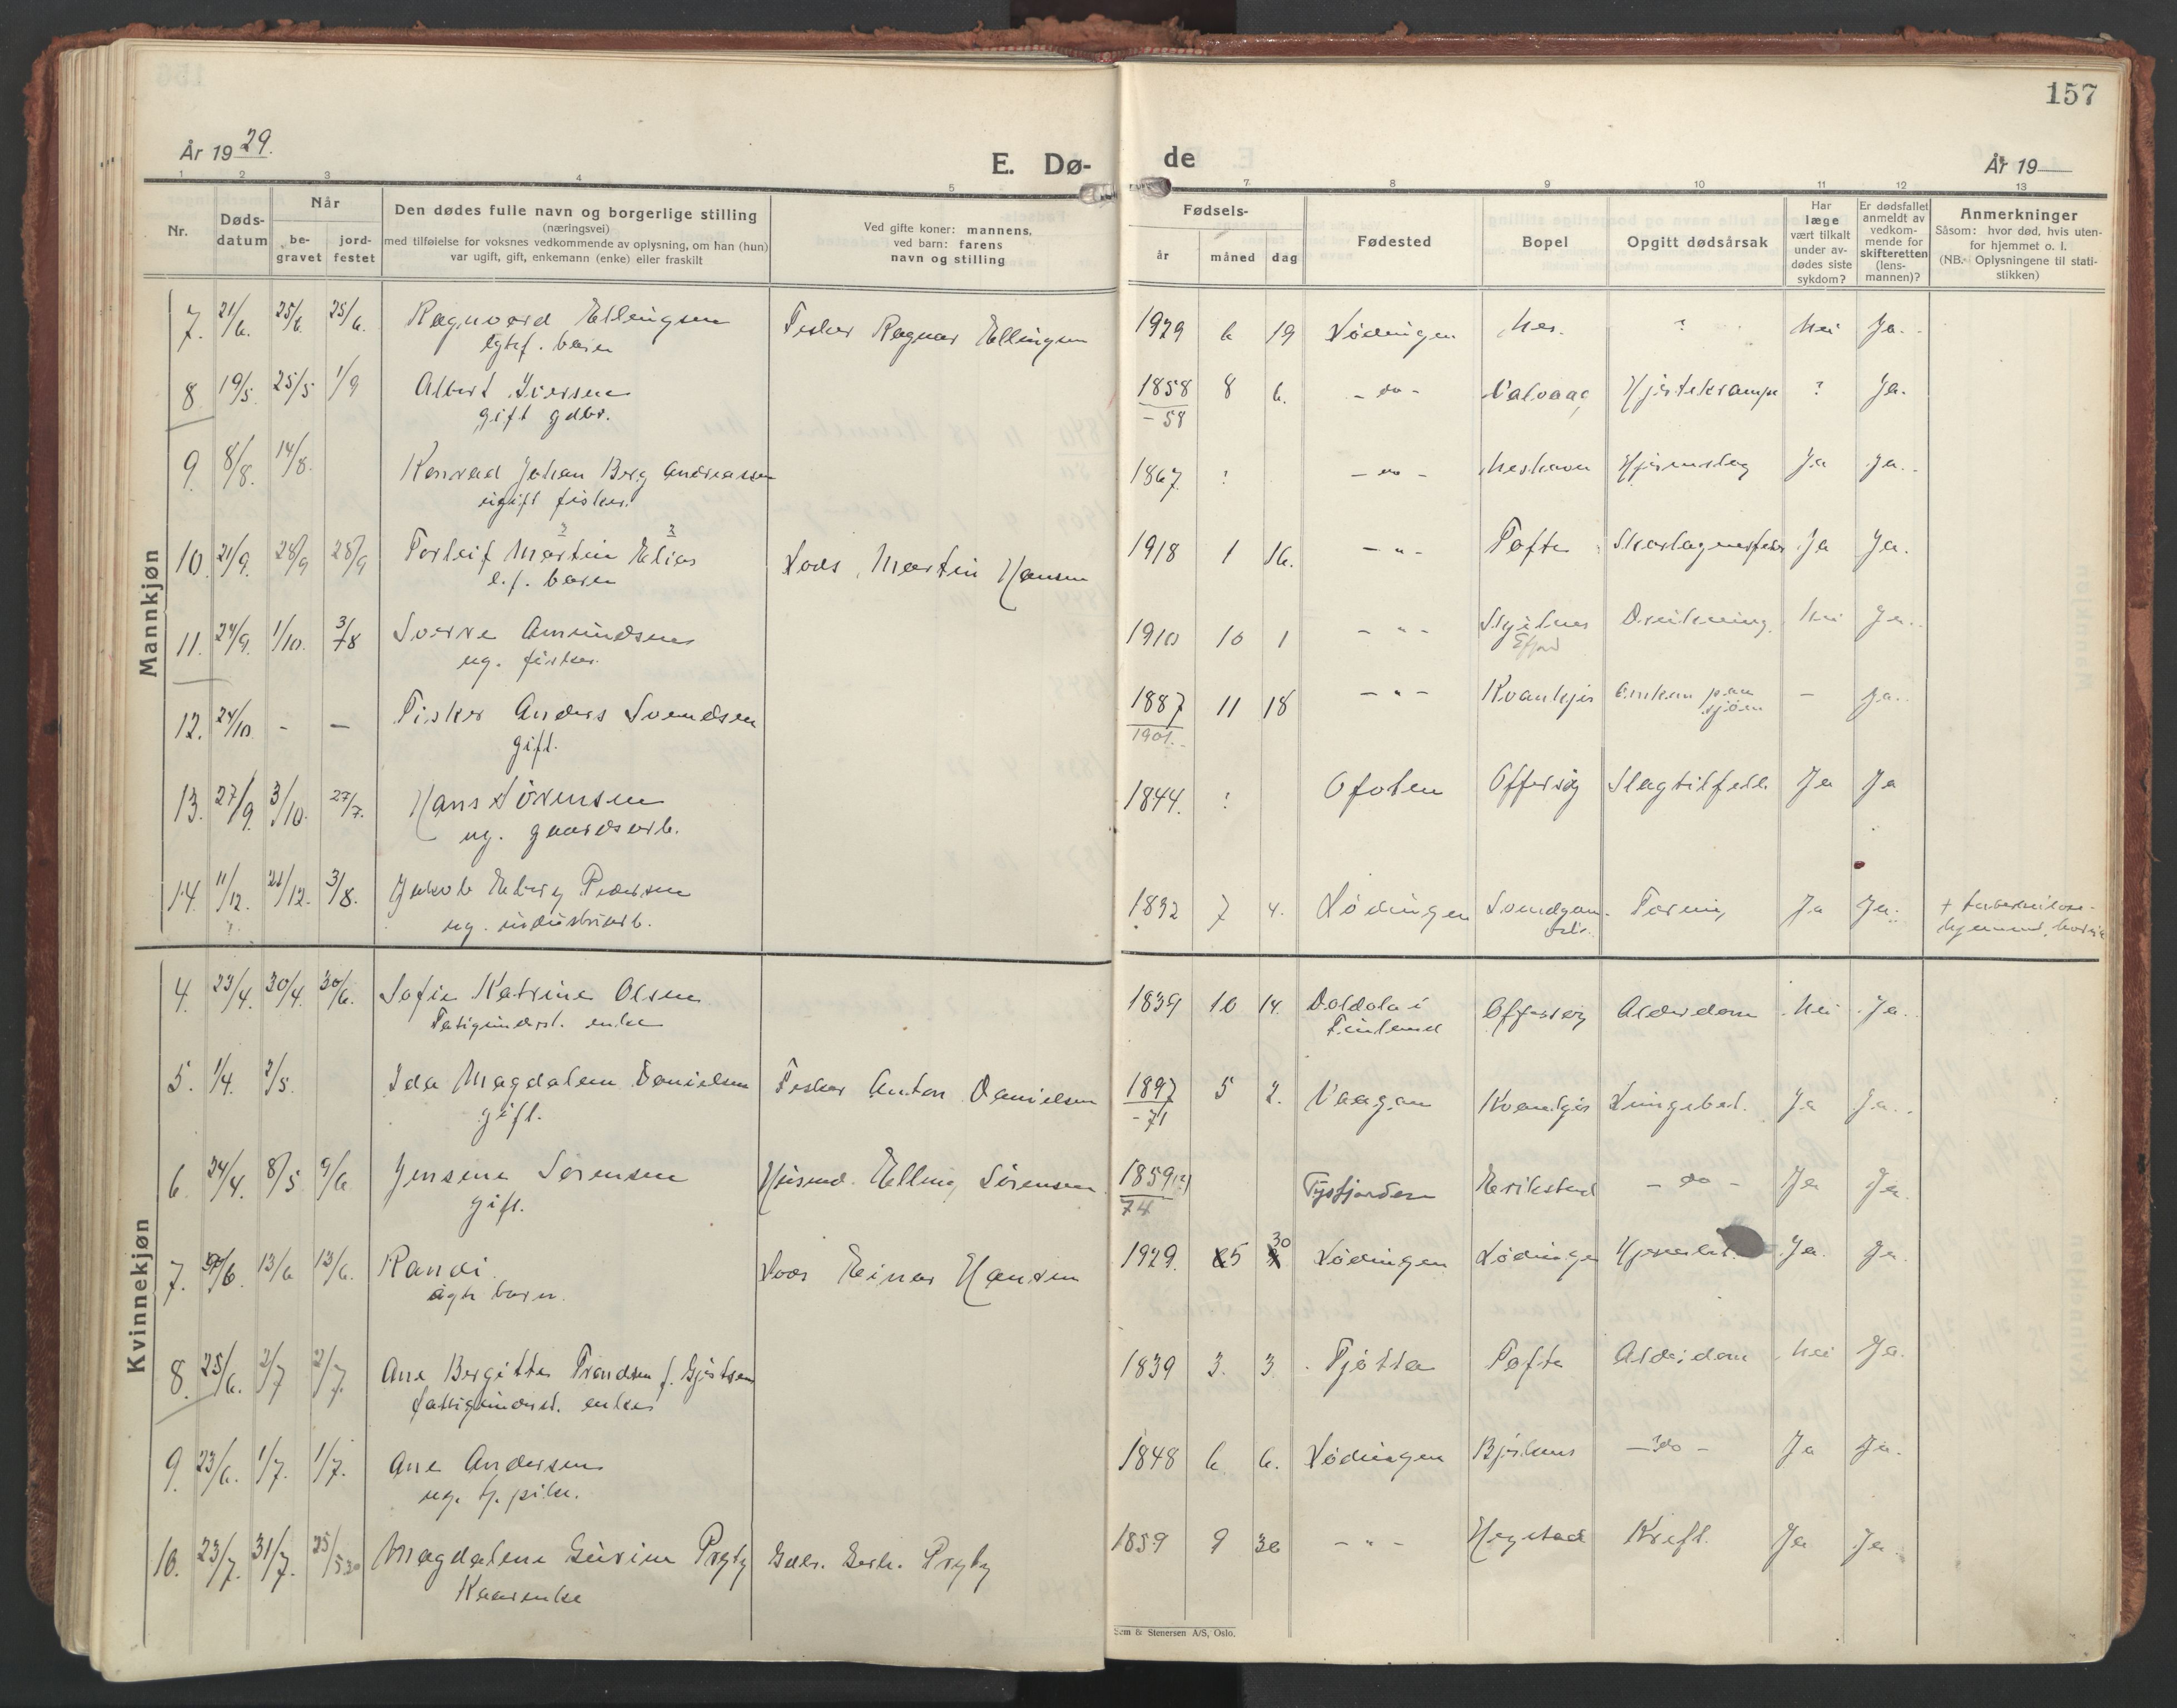 157
År 1929.
E. Dø-
de
År 19
1 2 3 4 5
7 8 9 10 11 12 13
Nr.
Døds-
datum
Når
be-
gravet
jord-
festet
Den dødes fulle navn og borgerlige stilling
(næringsvei)
med tilføielse for voksnes vedkommende av oplysning, om han (hun)
var ugift, gift, enkemann (enke) eller fraskilt
Ved gifte koner: mannens,
ved barn: farens
navn og stilling
Fødsels-
år måned dag
Fødested
Bopel
Opgitt dødsårsak
Har
læge
vært tilkalt
under av-
dødes siste
sykdom?
Er dødsfallet
anmeldt av
vedkom-
mende for
skifteretten
(lens-
mannen)?
Anmerkninger
Såsom: hvor død, hvis uten-
for hjemmet o. l.
(NB. Oplysningene til stati-
stikken)
Mannkjøn
7. 21/6. 25/6. 25/6. Ragnvard Ellingsen Fisker Ragnar Ellingsen 1929 6 19 Lödingen Nes. ? Nei Ja.
barn
8 19/5. 25/5 1/9 Albert Iversen 1858 8 6. - do - Valvaag Hjertekrampe ? Ja.
gift gdbr. - 58
9. 8/8. 14/8. Konrad Johan Berg Andreassen 1867. ? - do - Neshavn Hjerneslag Ja Ja.
ugift fisker.
10. 21/9. 28/9 28/9 Torleif Martin Elias Lods Martin Hansen 1918 1 16. - " - Tofte Skarlagensfeber Ja Ja.
e.f. barn
11. 24/9. 1/10. 3/8 Sverre Amundsen 1910 10 1 - " - Drukning. Nei Ja.
ug. fisker. Efjord
12. 24/10. - - Fisker Anders Svendsen 1887 11 18 - " - Kvankjos Omkom paa - Ja.
gift. 1901. sjöen
13. 27/9. 3/10. 27/7. Hans Sörensen 1844. ? Ofoten Offersöy Slagtilfelle Ja Ja
ug. gaardsarb.
14. 11/12. 21/12. 3/8. Jakob Edvin Pedersen 1892 7 4. Lödingen Ja Ja.
ug. industriarb.
Kvinnekjøn
4. 23/4. 30/4. 30/6. Sofie Katrine Olsen 1839 10 14. Doldola i Offersöy Alderdom Nei Ja.
Fatigunderst. enke Finland
5. 1/4. 2/5. Ida Magdalene Danielsen Fisker Anton Danielsen 1897 5 2. Vaagan Kvankjos Lungebet. Ja Ja.
gift. - 71
6 24/4. 8/5 9/6 Jensine Sörensen Husmd. Elling Sörensen 1859 Tysfjorden Erikstad - do - Ja Ja.
gift. 74
7. 9/6. 13/6 13/6. Randi Lods Einar Hansen 1929. 5 30 Lödingen Lödingen Ja. Ja.
ägte barn.
8. 25/6. 2/7 2/7. Ane Bergitte Trondsen f. Gjertsen 1839 3. 3 Tjötta Tofte Alderdom Nei Ja.
fattigunderst. enke
9. 23/6. 1/7. 1/7. Ane Andersen 1848 6 6. Lödingen - do - Ja Ja.
ug.
10. 23/7. 31/7. 25/5 30 Magdalene Gurine Pryty Gdbr. Pryty 1859 9 30 - " - Hegstad Kreft. Ja Ja.
Kaarenke
Sem & Stenersen A/S, Oslo.